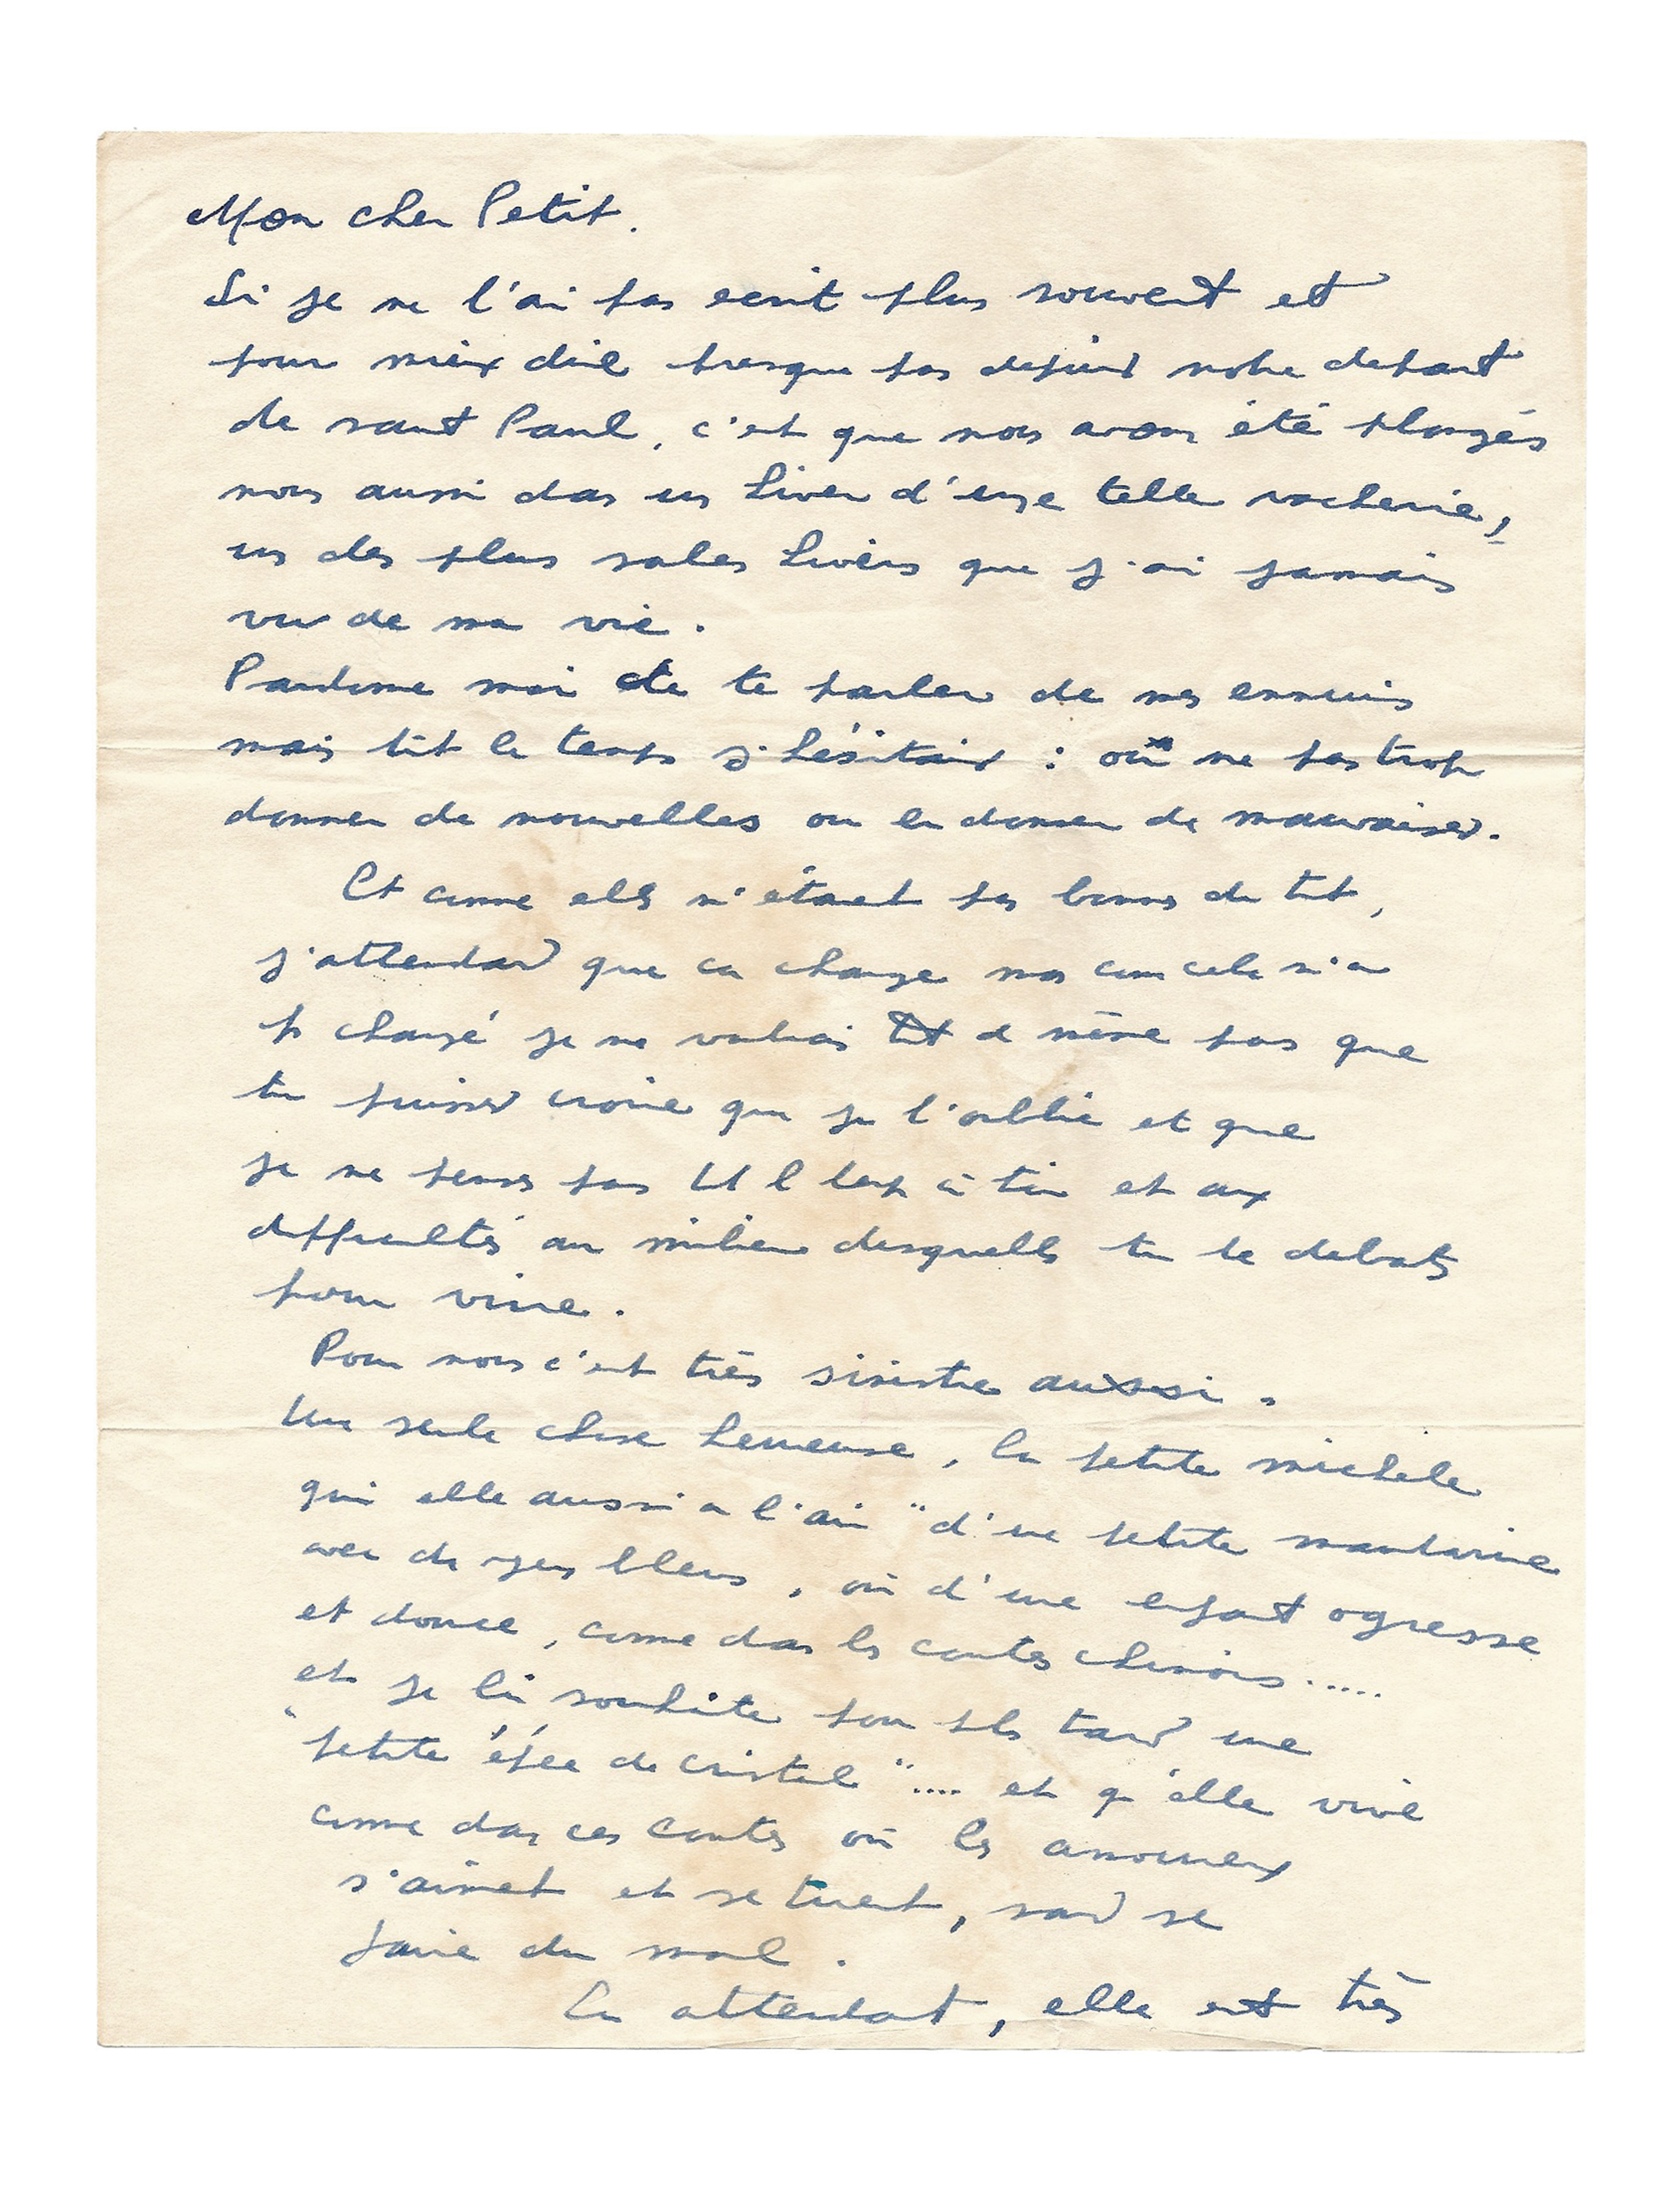 Mon cher Petit.
Si je ne t'ai pas ecrit plus souvent et
pour mieux dire presque pas depuis notre depart
de saint Paul, c'est que nous avons été plongés
nous aussi dans un hiver d'une telle vacherie,
un des plus sales hivers que j'ai jamais
vu de ma vie.
Pardonne moi de te parler de mes ennuis
mais tout le temps j'hésitais : ou ne pas trop
donner de nouvelles ou en donner de mauvaises.
Et comme elles n'étaient pas bonnes du tout,
j'attendais que ca change mais comme cela n'a
pas changé je ne voulais tout de même pas que
tu puisses croire que je t'oublie et que
je ne pense pas tout le temps à toi et aux
difficultés au milieu desquelles tu te debats
pour vivre.
Pour nous c'est très sinistre aussi.
Une seule chose heureuse, la petite michèle
qui elle aussi a l'air "d'une petite mandarine
avec des yeux bleus, ou d'une enfant ogresse
et douce, comme dans les contes chinois.....
et je lui souhaite pour plus tard une
"petite épée de cristal".... et qu'elle vive
comme dans ces contes où les amoureux
s'aiment et se tuent, sans se
faire du mal.
En attendant, elle est très